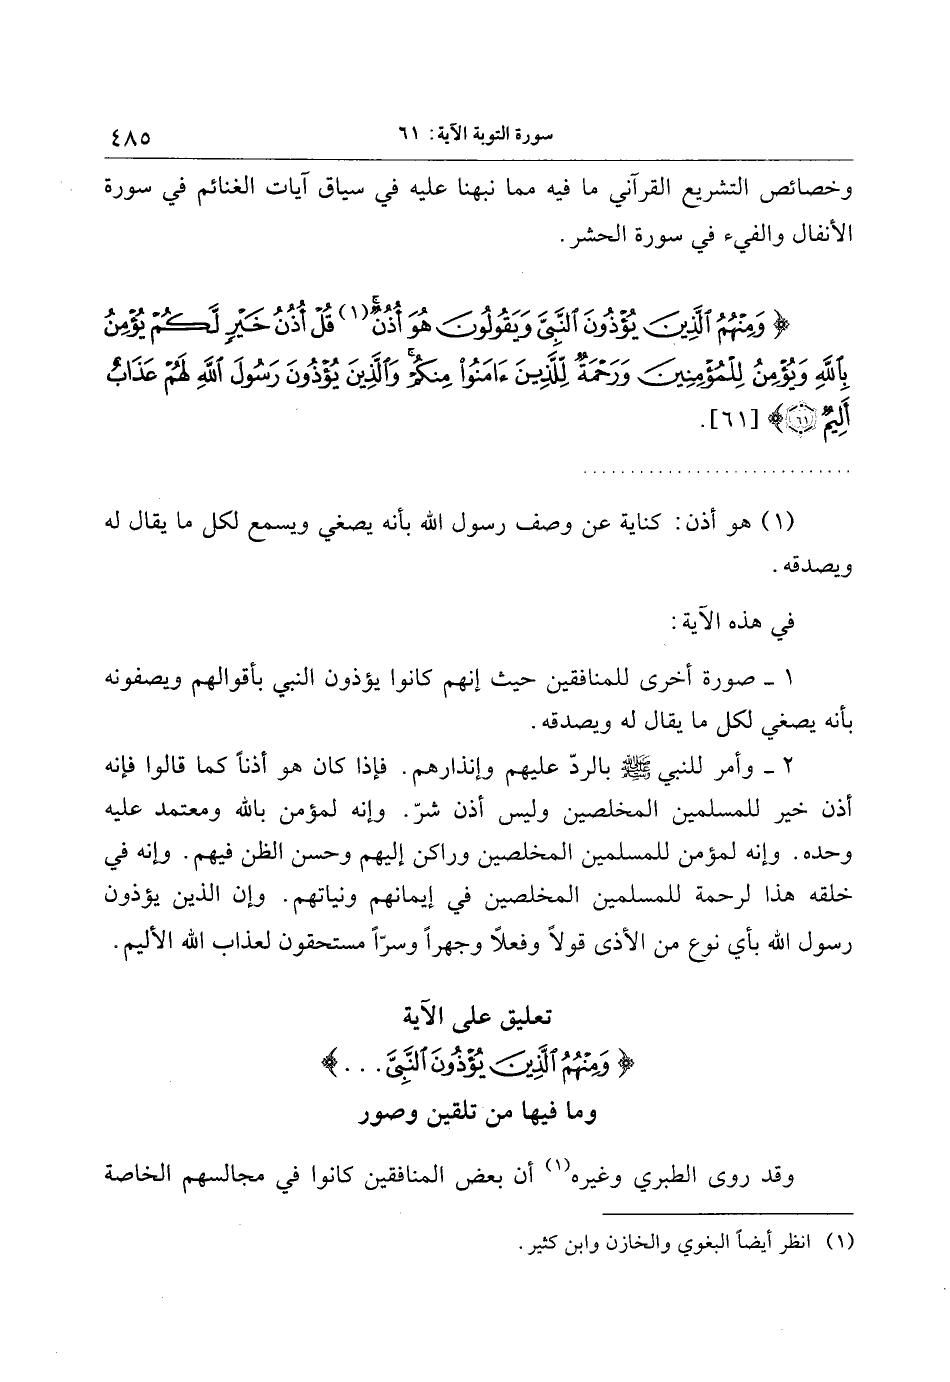 سورة التوبة الآية: ٦١ ٤٨٥
وخصائص التشريع القرآني ما فيه مما نبهنا عليه في سياق آيات الغنائم في سورة
الأنفال والفيء في سورة الحشر.
﴿ وَمِنْهُمُ ٱلَّذِينَ يُؤْذُونَ ٱلنَّبِىَّ وَيَقُولُونَ هُوَ أُذُنٌۚ(١) قُلْ أُذُنُ خَيْرٍ لَّكُمْ يُؤْمِنُ
بِٱللَّهِ وَيُؤْمِنُ لِلْمُؤْمِنِينَ وَرَحْمَةٌ لِّلَّذِينَ ءَامَنُوا۟ مِنكُمْۚ وَٱلَّذِينَ يُؤْذُونَ رَسُولَ ٱللَّهِ لَهُمْ عَذَابٌ
أَلِيمٌ ٦١﴾ [٦١].
............................
(١) هو أذن: كناية عن وصف رسول الله بأنه يصغي ويسمع لكل ما يقال له
ويصدقه.
في هذه الآية:
١ ـ صورة أخرى للمنافقين حيث إنهم كانوا يؤذون النبي بأقوالهم ويصفونه
بأنه يصغي لكل ما يقال له ويصدقه.
٢ ـ وأمر للنبي ﷺ بالردّ عليهم وإنذارهم. فإذا كان هو أذناً كما قالوا فإنه
أذن خير للمسلمين المخلصين وليس أذن شرّ. وإنه لمؤمن بالله ومعتمد عليه
وحده. وإنه لمؤمن للمسلمين المخلصين وراكن إليهم وحسن الظن فيهم. وإنه في
خلقه هذا لرحمة للمسلمين المخلصين في إيمانهم ونياتهم. وإن الذين يؤذون
رسول الله بأي نوع من الأذى قولاً وفعلاً وجهراً وسرّاً مستحقون لعذاب الله الأليم.
تعليق على الآية
﴿ وَمِنْهُمُ ٱلَّذِينَ يُؤْذُونَ ٱلنَّبِىَّ . . . ﴾
وما فيها من تلقين وصور
وقد روى الطبري وغيره(١) أن بعض المنافقين كانوا في مجالسهم الخاصة
(١) انظر أيضاً البغوي والخازن وابن كثير.